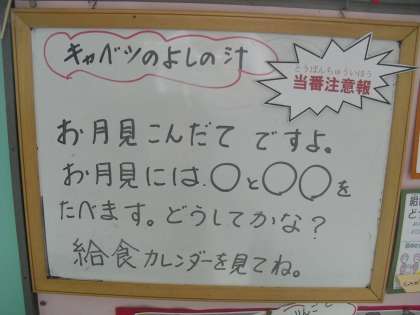 キャベツのよしの汁
とうばんちゅういほう
当番注意報
お月見こんだて ですよ。
お月見には、○と○○を
たべます。どうしてかな？
給食カレンダーを見てね。